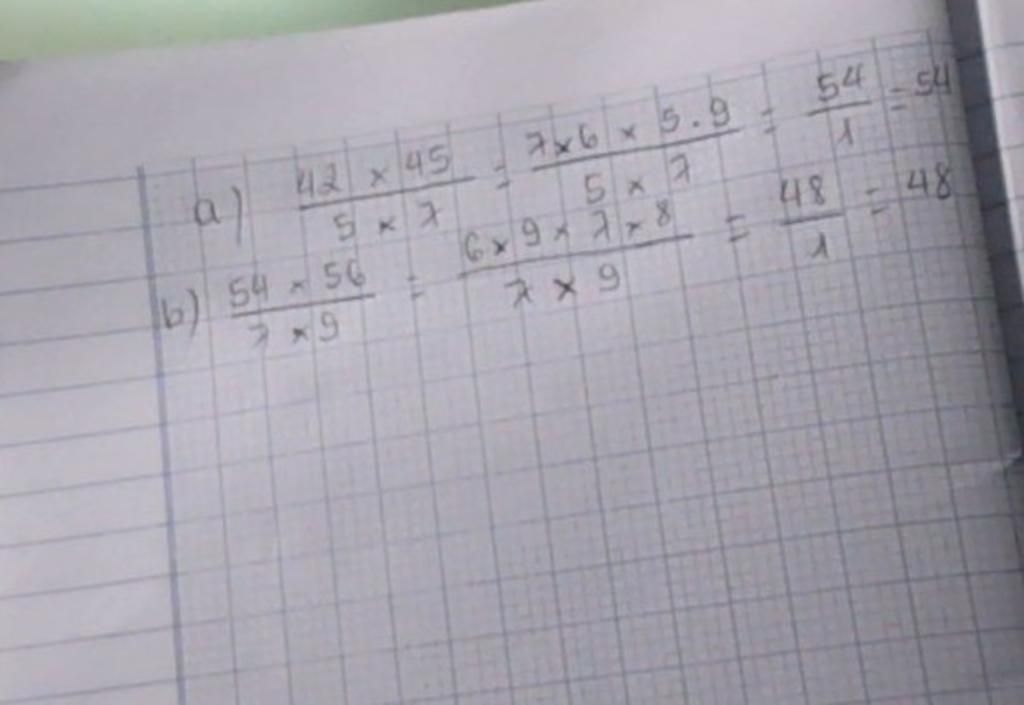 a) 42 × 45 / 5 × 7 = 7×6 × 5.9 / 5 × 7 = 54 / 1 = 54
b) 54 × 56 / 7 × 9 = 6 × 9 × 7 × 8 / 7 × 9 = 48 / 1 = 48